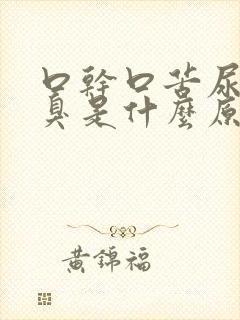 口幹口苦尿
臭是什麼原
黃錦福